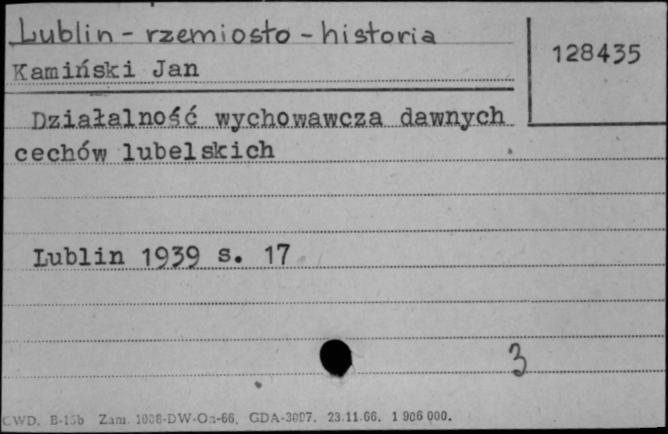 Lublin - rzemiosło - historia
128435
Kamiński Jan
Działalność wychowawcza dawnych
cechów lubelskich
Lublin 1939 s. 17
3
CWD. B-15b Zam. 1008-DW-Oa-66. GDA-3007. 23.11.66. 1 906 000.